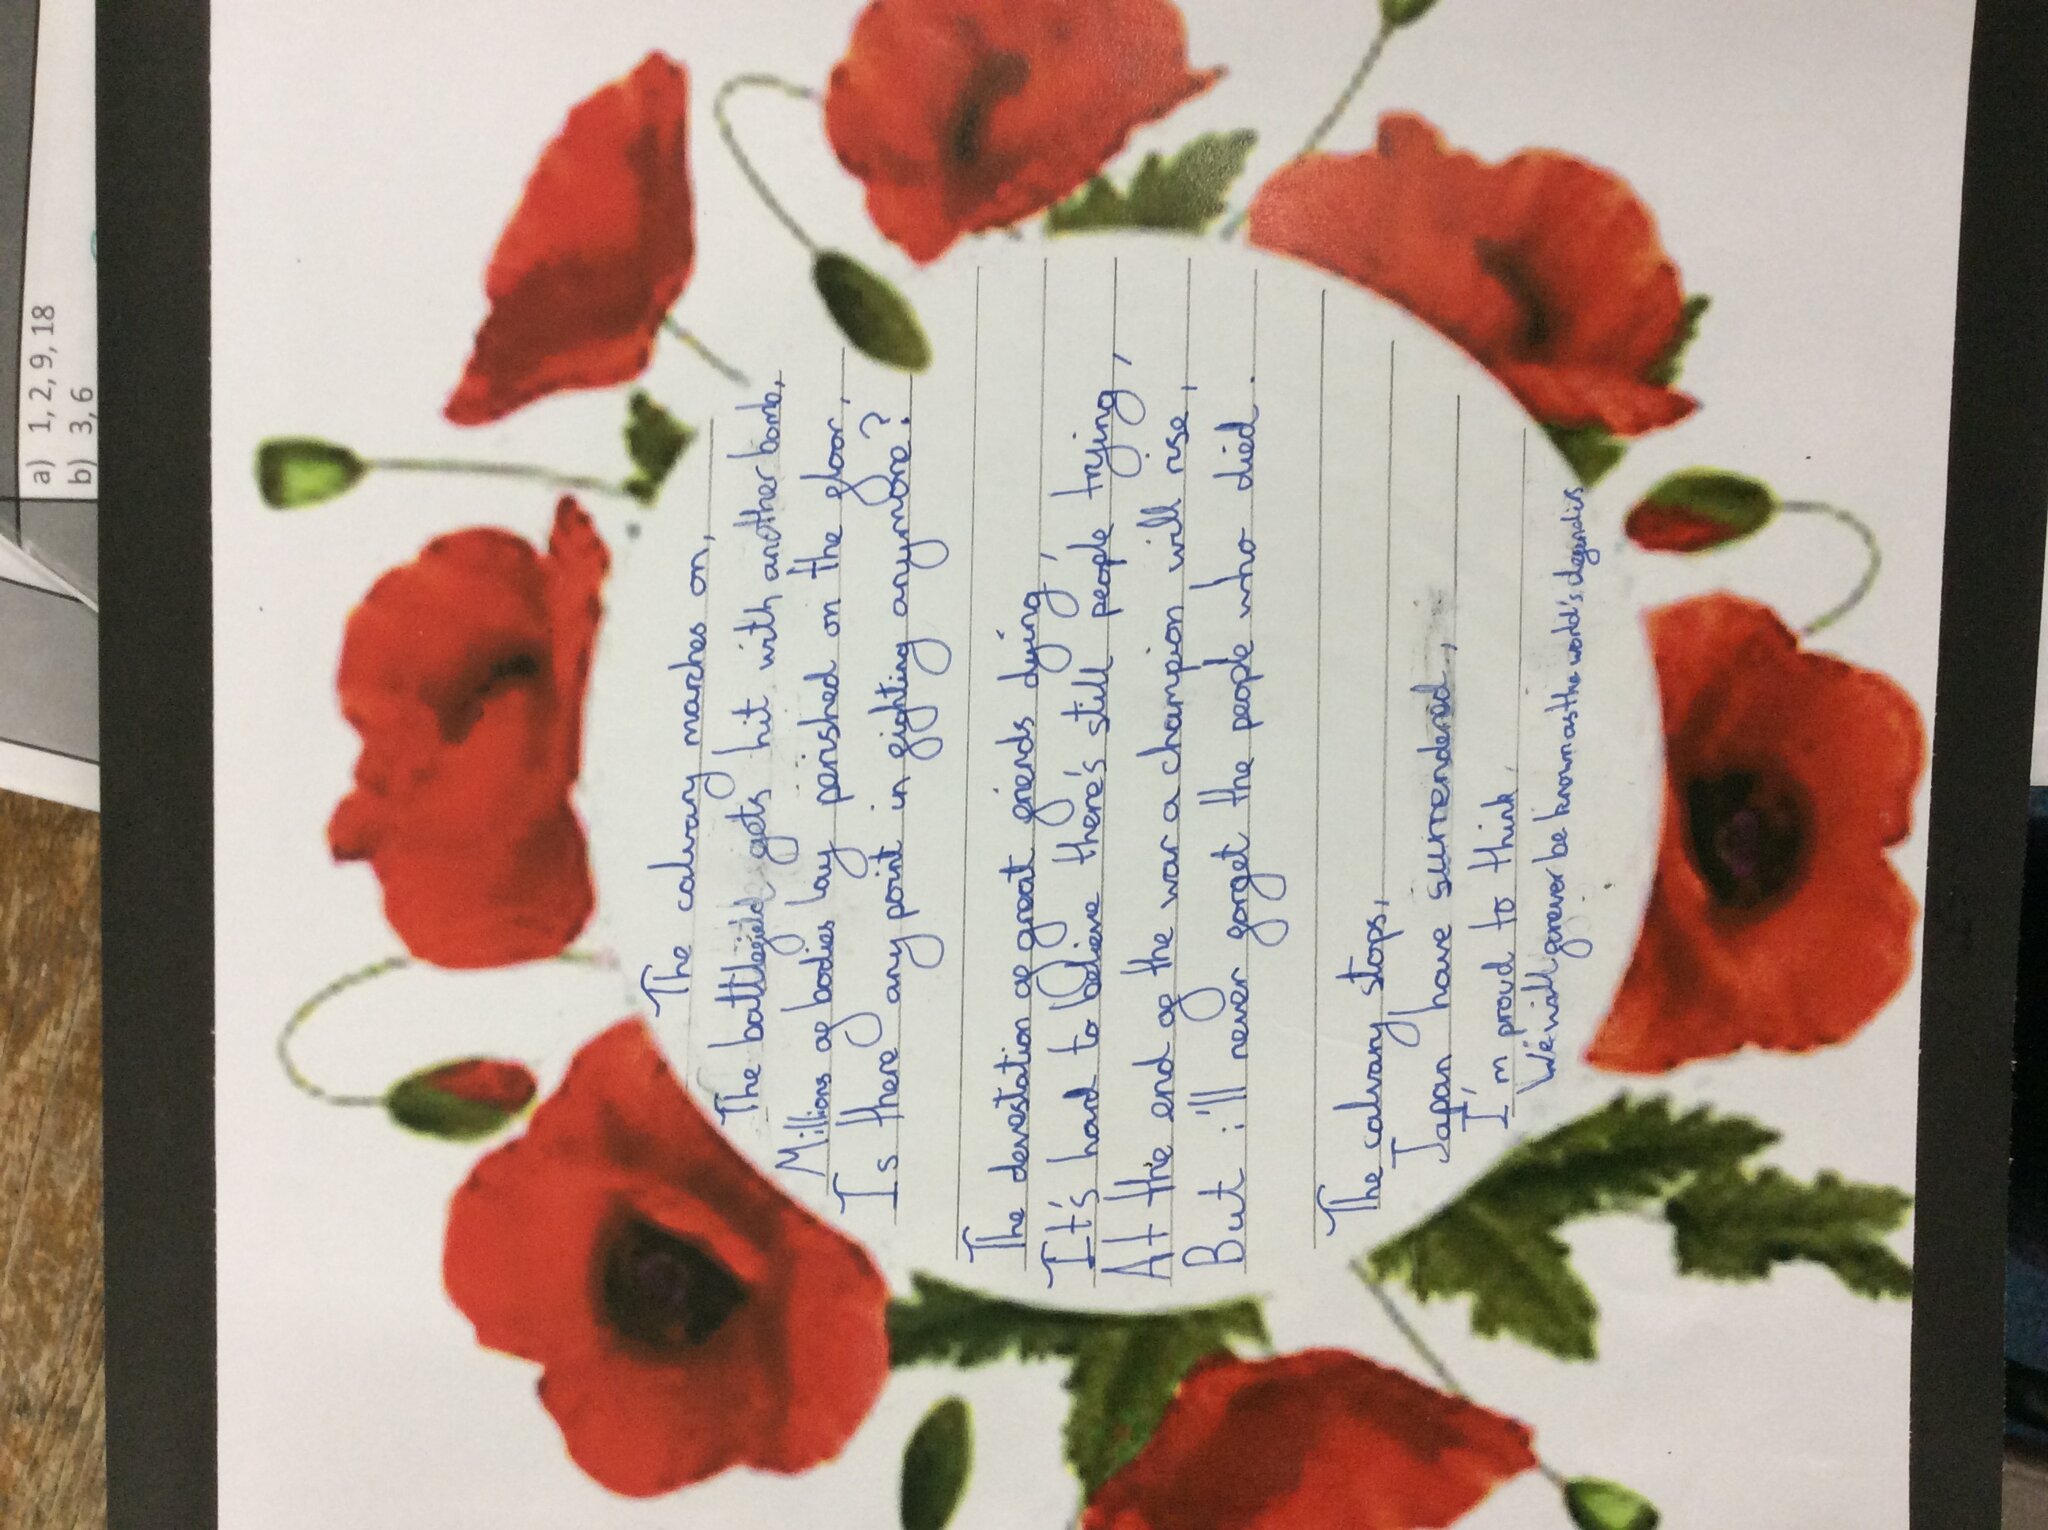 a) 1, 2, 9, 18
b) 3, 6
The calvary marches on,
The battlefield gets hit with another bomb,
Millions of bodies lay perished on the floor,
Is there any point in fighting anymore?
The devestation of great friends dying,
It's hard to believe there's still people trying,
At the end of the war a champion will rise,
But i'll never forget the people who died.
The calvary stops,
Japan have surrendered,
I'm proud to think
We will forever be known as the world's